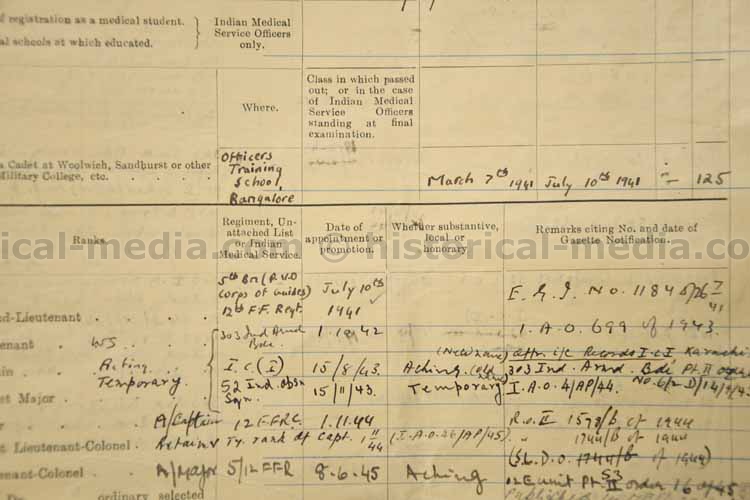 of registration as a medical student.
al schools at which educated.
Indian Medical
Service Officers
only.
Where.
Class in which passed
out; or in the case
of Indian Medical
Service Officers
standing at final
examination.
a Cadet at Woolwich, Sandhurst or other
Military College, etc.
Officers
Training
School,
Bangalore
March 7th 1941 July 10th 1941 125
Ranks.
Regiment, Un-
attached List
or Indian
Medical Service.
Date of
appointment or
promotion.
Whether substantive,
local or
honorary
Remarks citing No. and date of
Gazette Notification.
historical-media.com
nd-Lieutenant
5th Bn (Q.V.O
Corps of Guides)
12th F.F. Regt.
July 10th
1941
tenant WS
303 Ind Armd
Bde
1.10.42
I.A.O 699 of 1943.
Acting
I.C. (I)
15/8/43
Aching
303 Ind. Armd. Bde Pt. II order
Temporary
52 Ind.
Sqn.
15/11/43.
Temporary
I.A.O. 4/AP/44.
et Major
A/Captain 12 FFRC. 1.11.44
of 1944
t Lieutenant-Colonel
Retains Ty. rank of Capt.
(I.A.O.26/AP/45)
1744/b of 1944
tenant-Colonel
A/Major 5/12 FFR 8.6.45 Aching
of 1944)
12 E unit Pt II order 16 of 45
ordinary selected